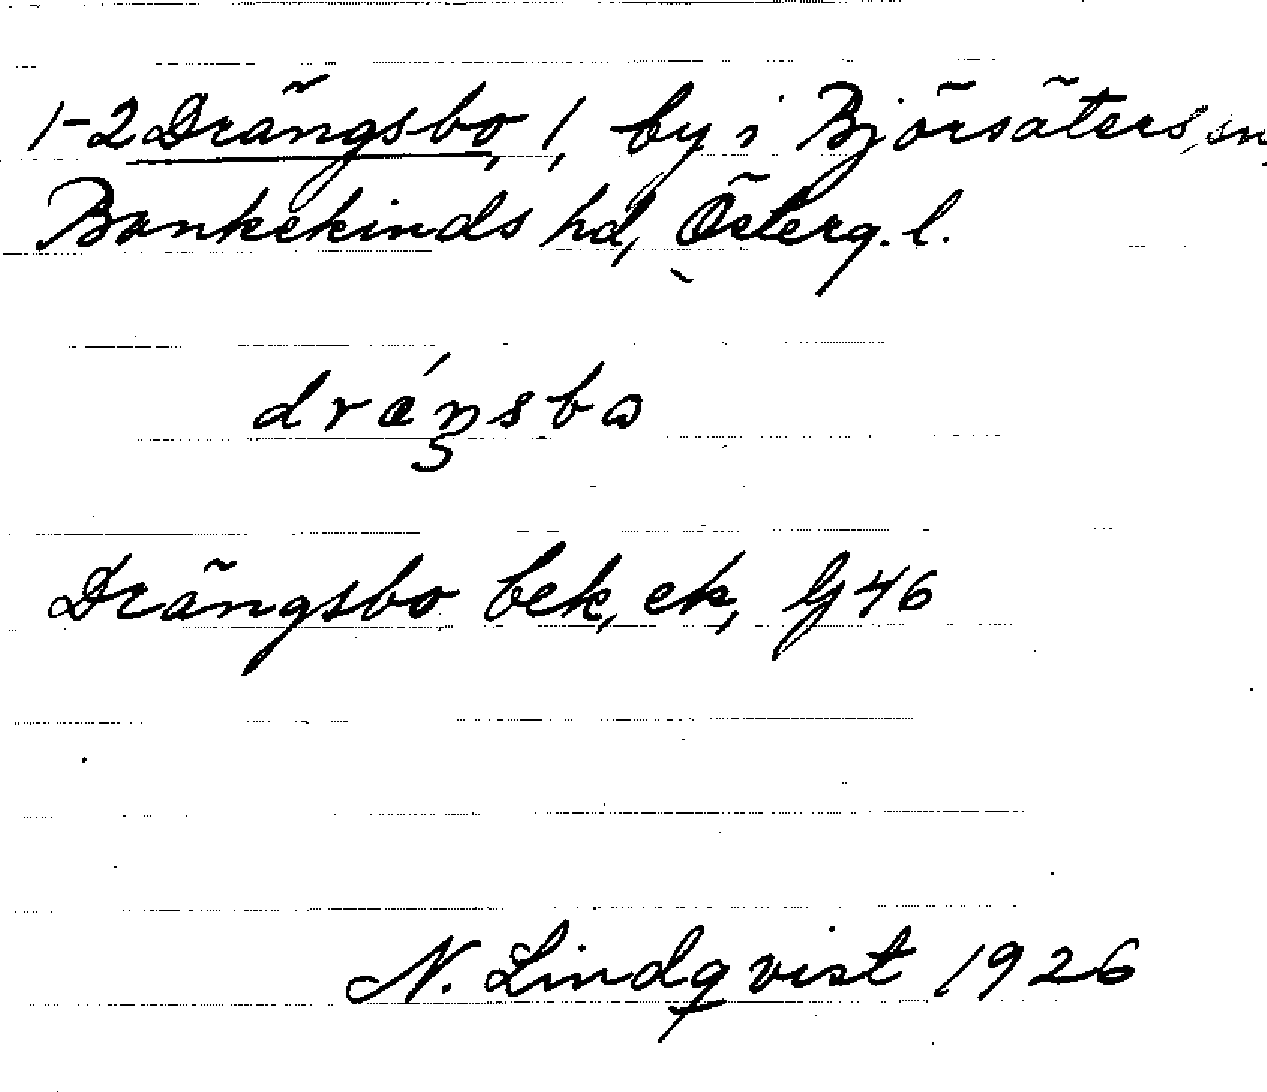 1-2 Drängsbo, 1, by i Björsäters, sn,
Bankekinds hd, Österg. l.
dráŋsbω
Drängsbo bek, ek, G 46
N. Lindqvist 1926